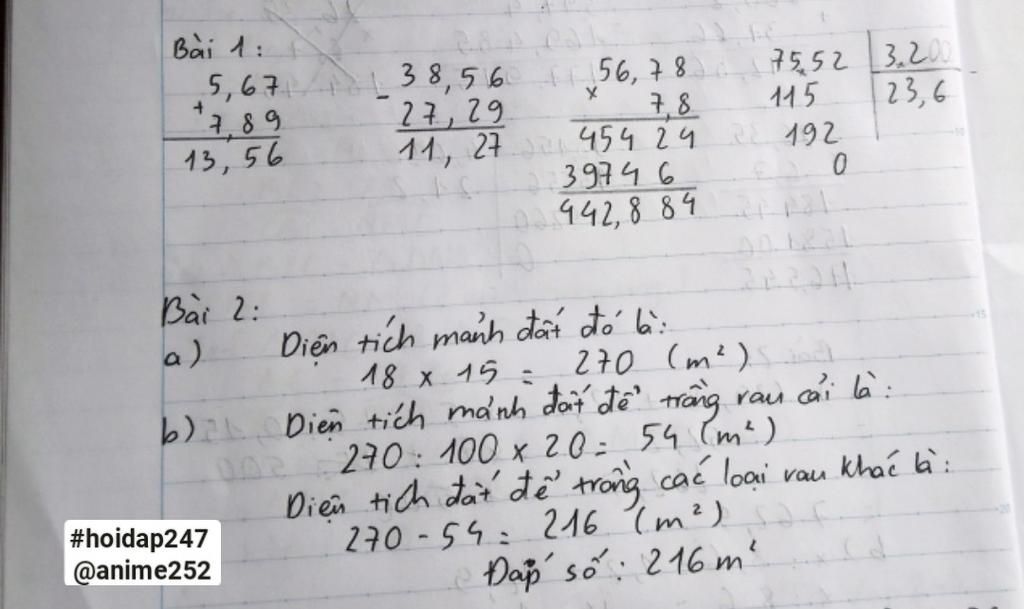 Bài 1:
5,67
+
7,89
13,56
38,56
-
27,29
11,27
56,78
x
7,8
454 24
3974 6
442,8 84
75,52 3,200
115 23,6
192
0
Bài 2:
a) Diện tích mảnh đất đó là:
18 x 15 = 270 (m²)
b) Diện tích mảnh đất để trồng rau cải là:
270 : 100 x 20 = 54 (m²)
Diện tích đất để trồng các loại rau khác là:
270 - 54 = 216 (m²)
Đáp số: 216 m²
#hoidap247
@anime252